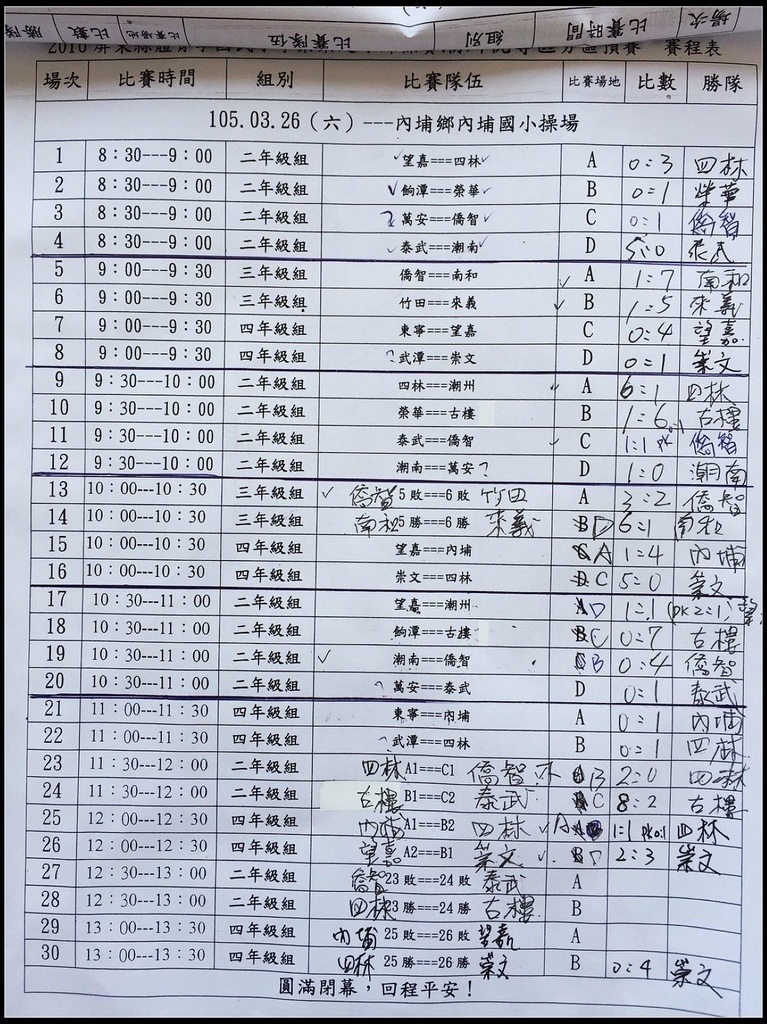 場次 比賽時間 組別 比賽隊伍 比數 勝隊
賽程表
場次 比賽時間 組別 比賽隊伍 比賽場地 比數 勝隊
105.03.26(六)---內埔鄉內埔國小操場
1 8:30---9:00 二年級組 望嘉===四林 A 0:3 四林
2 8:30---9:00 二年級組 餉潭===榮華 B 0:1 榮華
3 8:30---9:00 二年級組 萬安===僑智 C 0:1 僑智
4 8:30---9:00 二年級組 泰武===潮南 D 5:0 泰武
5 9:00---9:30 三年級組 僑智===南和 A 1:7 南和
6 9:00---9:30 三年級組 竹田===來義 B 1:5 來義
7 9:00---9:30 四年級組 東寧===望嘉 C 0:4 望嘉
8 9:00---9:30 四年級組 ?武潭===崇文 D 0:1 崇文
9 9:30---10:00 二年級組 四林===潮州 A 6:1 四林
10 9:30---10:00 二年級組 榮華===古樓 B 1:6 古樓
11 9:30---10:00 二年級組 泰武===僑智 C 1:1 PK 0:1 僑智
12 9:30---10:00 二年級組 潮南===萬安? D 1:0 潮南
13 10:00---10:30 三年級組 僑智 5敗===6敗 竹田 A 3:2 僑智
14 10:00---10:30 三年級組 南和 5勝===6勝 來義 D 6:1 南和
15 10:00---10:30 四年級組 望嘉===內埔 A 1:4 內埔
16 10:00---10:30 四年級組 崇文===四林 C 5:0 崇文
17 10:30---11:00 二年級組 望嘉===潮州 D 1:1 (PK 2:1) 望
18 10:30---11:00 二年級組 餉潭===古樓 C 0:7 古樓
19 10:30---11:00 二年級組 潮南===僑智 B 0:4 僑智
20 10:30---11:00 二年級組 ?萬安===泰武 D 0:1 泰武
21 11:00---11:30 四年級組 東寧===內埔 A 0:1 內埔
22 11:00---11:30 四年級組 ?武潭===四林 B 0:1 四林
23 11:30---12:00 二年級組 四林 A1===C1 僑智 B 2:0 四林
24 11:30---12:00 二年級組 古樓 B1===C2 泰武 C 8:2 古樓
25 12:00---12:30 四年級組 內埔 A1===B2 四林 A 1:1 PK 0:1 四林
26 12:00---12:30 四年級組 望嘉 A2===B1 崇文 D 2:3 崇文
27 12:30---13:00 二年級組 僑智 23敗===24敗 泰武 A
28 12:30---13:00 二年級組 四林 23勝===24勝 古樓 B
29 13:00---13:30 四年級組 內埔 25敗===26敗 望嘉 A
30 13:00---13:30 四年級組 四林 25勝===26勝 崇文 B 0:4 崇文
圓滿閉幕，回程平安！